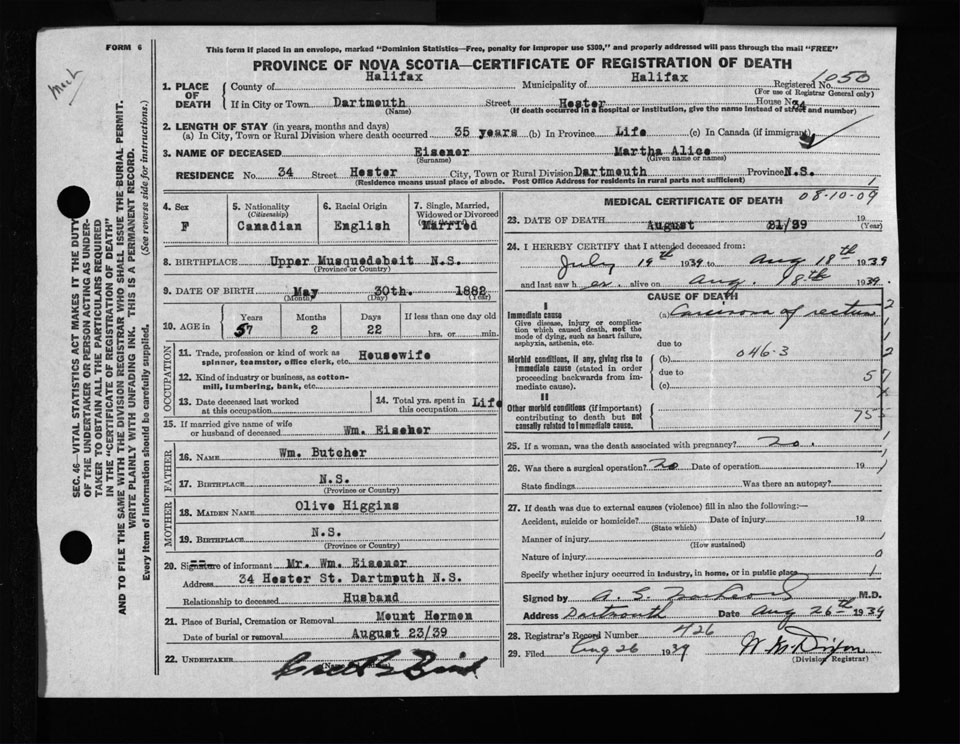 FORM 6
This form if placed in an envelope, marked "Dominion Statistics—Free, penalty for improper use $300," and properly addressed will pass through the mail "FREE"
PROVINCE OF NOVA SCOTIA—CERTIFICATE OF REGISTRATION OF DEATH
1. PLACE OF DEATH
County of Halifax Municipality of Halifax Registered No. 1050
(For use of Registrar General only)
If in City or Town Dartmouth Street Hester House No. 34
(Name) (If death occurred in a hospital or institution, give the name instead of street and number)
2. LENGTH OF STAY (in years, months and days)
(a) In City, Town or Rural Division where death occurred 35 years (b) In Province Life (c) In Canada (if immigrant)
3. NAME OF DECEASED Eisener Martha Alice
(Surname) (Given name or names)
RESIDENCE No. 34 Street Hester City, Town or Rural Division Dartmouth Province N.S.
(Residence means usual place of abode. Post Office Address for residents in rural parts not sufficient) 1
4. Sex F
5. Nationality (Citizenship) Canadian
6. Racial Origin English
7. Single, Married, Widowed or Divorced Married
8. BIRTHPLACE Upper Musquodoboit N.S.
(Province or Country)
9. DATE OF BIRTH May 30th. 1882
(Month) (Day) (Year)
10. AGE in Years 57 Months 2 Days 22 If less than one day hrs. or min.
OCCUPATION
11. Trade, profession or kind of work as spinner, teamster, office clerk, etc. Housewife
12. Kind of industry or business, as cotton-mill, lumbering, bank, etc.
13. Date deceased last worked at this occupation
14. Total yrs. spent in this occupation Life
15. If married give name of wife or husband of deceased Wm. Eisener
FATHER
16. NAME Wm. Butcher
17. BIRTHPLACE N.S.
(Province or Country)
MOTHER
18. MAIDEN NAME Olive Higgins
19. BIRTHPLACE N.S.
(Province or Country)
20. Signature of informant Mr. Wm. Eisener
Address 34 Hester St. Dartmouth N.S.
Relationship to deceased Husband
21. Place of Burial, Cremation or Removal Mount Hermon
Date of burial or removal August 23/39
22. UNDERTAKER
MEDICAL CERTIFICATE OF DEATH 08-10-09
23. DATE OF DEATH August 21/39 19
(Year)
24. I HEREBY CERTIFY that I attended deceased from:
July 19th 1939 to Aug 18th 1939
and last saw her alive on Aug. 18th 1939.
CAUSE OF DEATH
I
Immediate cause
Give disease, injury or complication which caused death, not the mode of dying, such as heart failure, asphyxia, asthenia, etc.
(a) Carcinoma of rectum
due to
Morbid conditions, if any, giving rise to immediate cause (stated in order proceeding backwards from immediate cause).
(b) 046-3
due to
(c)
II
Other morbid conditions (if important) contributing to death but not causally related to immediate cause.
25. If a woman, was the death associated with pregnancy? no.
26. Was there a surgical operation? no Date of operation 19
State findings Was there an autopsy?
27. If death was due to external causes (violence) fill in also the following:—
Accident, suicide or homicide? Date of injury 19
(State which)
Manner of injury
(How sustained)
Nature of injury
Specify whether injury occurred in industry, in home, or in public place
Signed by A. S. M.D.
Address Dartmouth Date Aug 26th 1939
28. Registrar's Record Number 426
29. Filed Aug 26 1939 Dixon
(Division Registrar)
SEC. 46—VITAL STATISTICS ACT MAKES IT THE DUTY
OF THE UNDERTAKER OR PERSON ACTING AS UNDER-
TAKER TO OBTAIN ALL THE PARTICULARS REQUIRED
IN THE "CERTIFICATE OF REGISTRATION OF DEATH"
AND TO FILE THE SAME WITH THE DIVISION REGISTRAR WHO SHALL ISSUE THE BURIAL PERMIT.
WRITE PLAINLY WITH UNFADING INK. THIS IS A PERMANENT RECORD.
Every item of information should be carefully supplied. (See reverse side for instructions.)